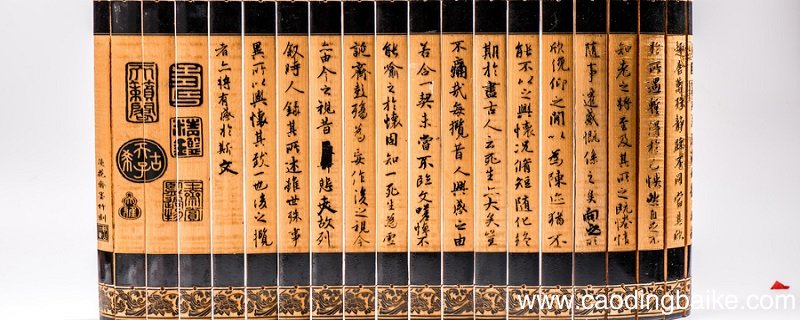 趣舍萬殊靜躁不同當其欣
於所遇暫得於己怏然自足不
知老之將至及其所之既惓情
隨事遷感慨係之矣向之所
欣俛仰之閒以為陳迹猶不
能不以之興懷況脩短隨化終
期於盡古人云死生亦大矣豈
不痛哉每攬昔人興感之由
若合一契未嘗不臨文嗟悼不
能喻之於懷固知一死生為虛
誕齊彭殤為妄作後之視今
亦由今之視昔悲夫故列
敘時人錄其所述雖世殊事
異所以興懷其致一也後之攬
者亦將有感於斯文
古希天子
www.caodingbaike.com